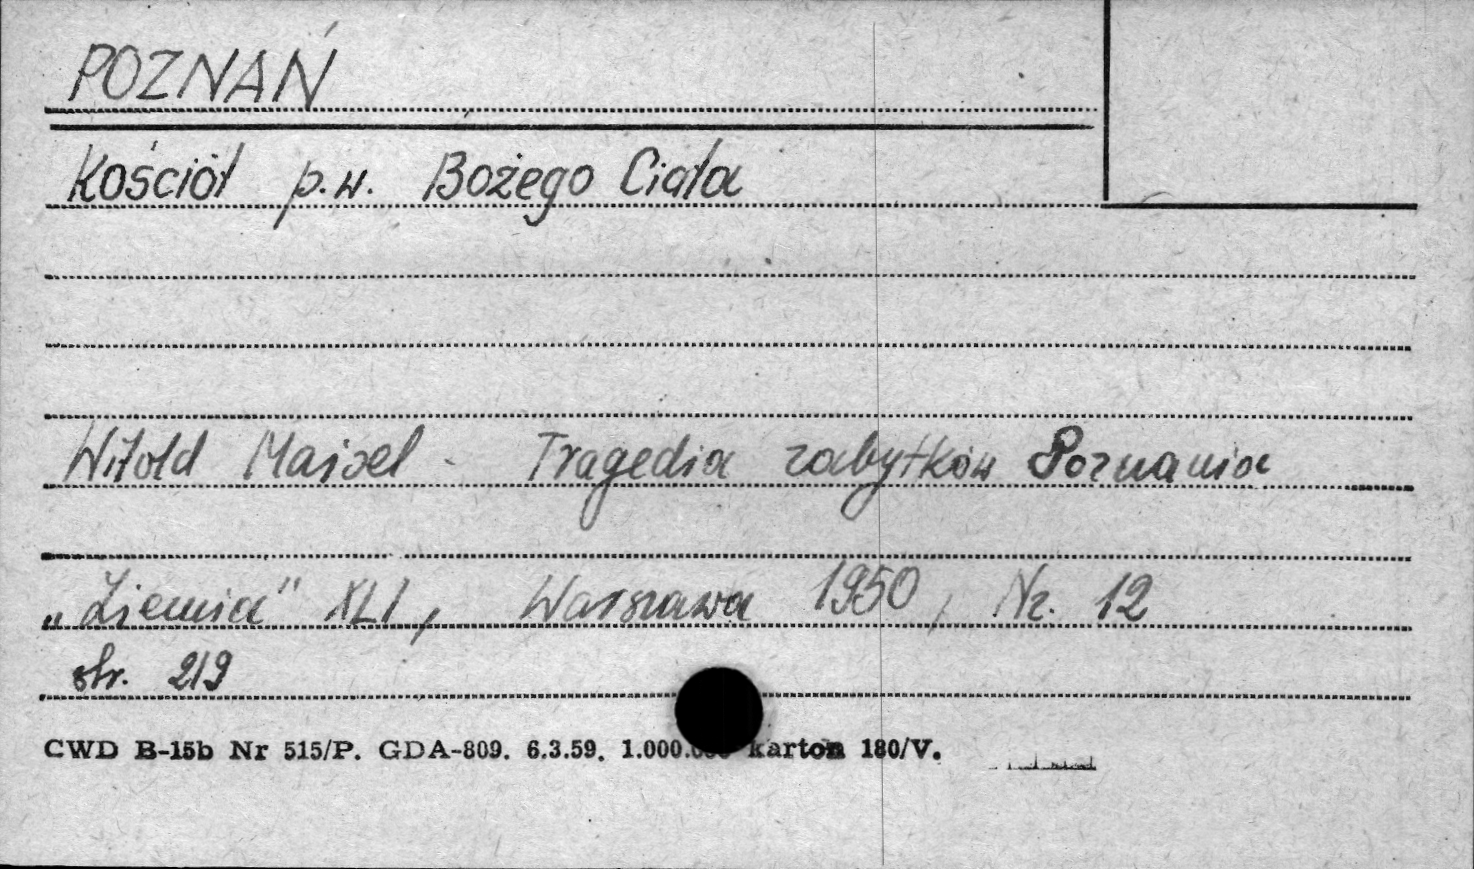 POZNAŃ
Kościół p.w. Bożego Ciała
Witold Maisel - Tragedia zabytków Poznania
„Ziemia" XLI, Warszawa 1950, Nr. 12
str. 219
CWD B-15b Nr 515/P. GDA-809. 6.3.59. 1.000.000 karton 180/V.